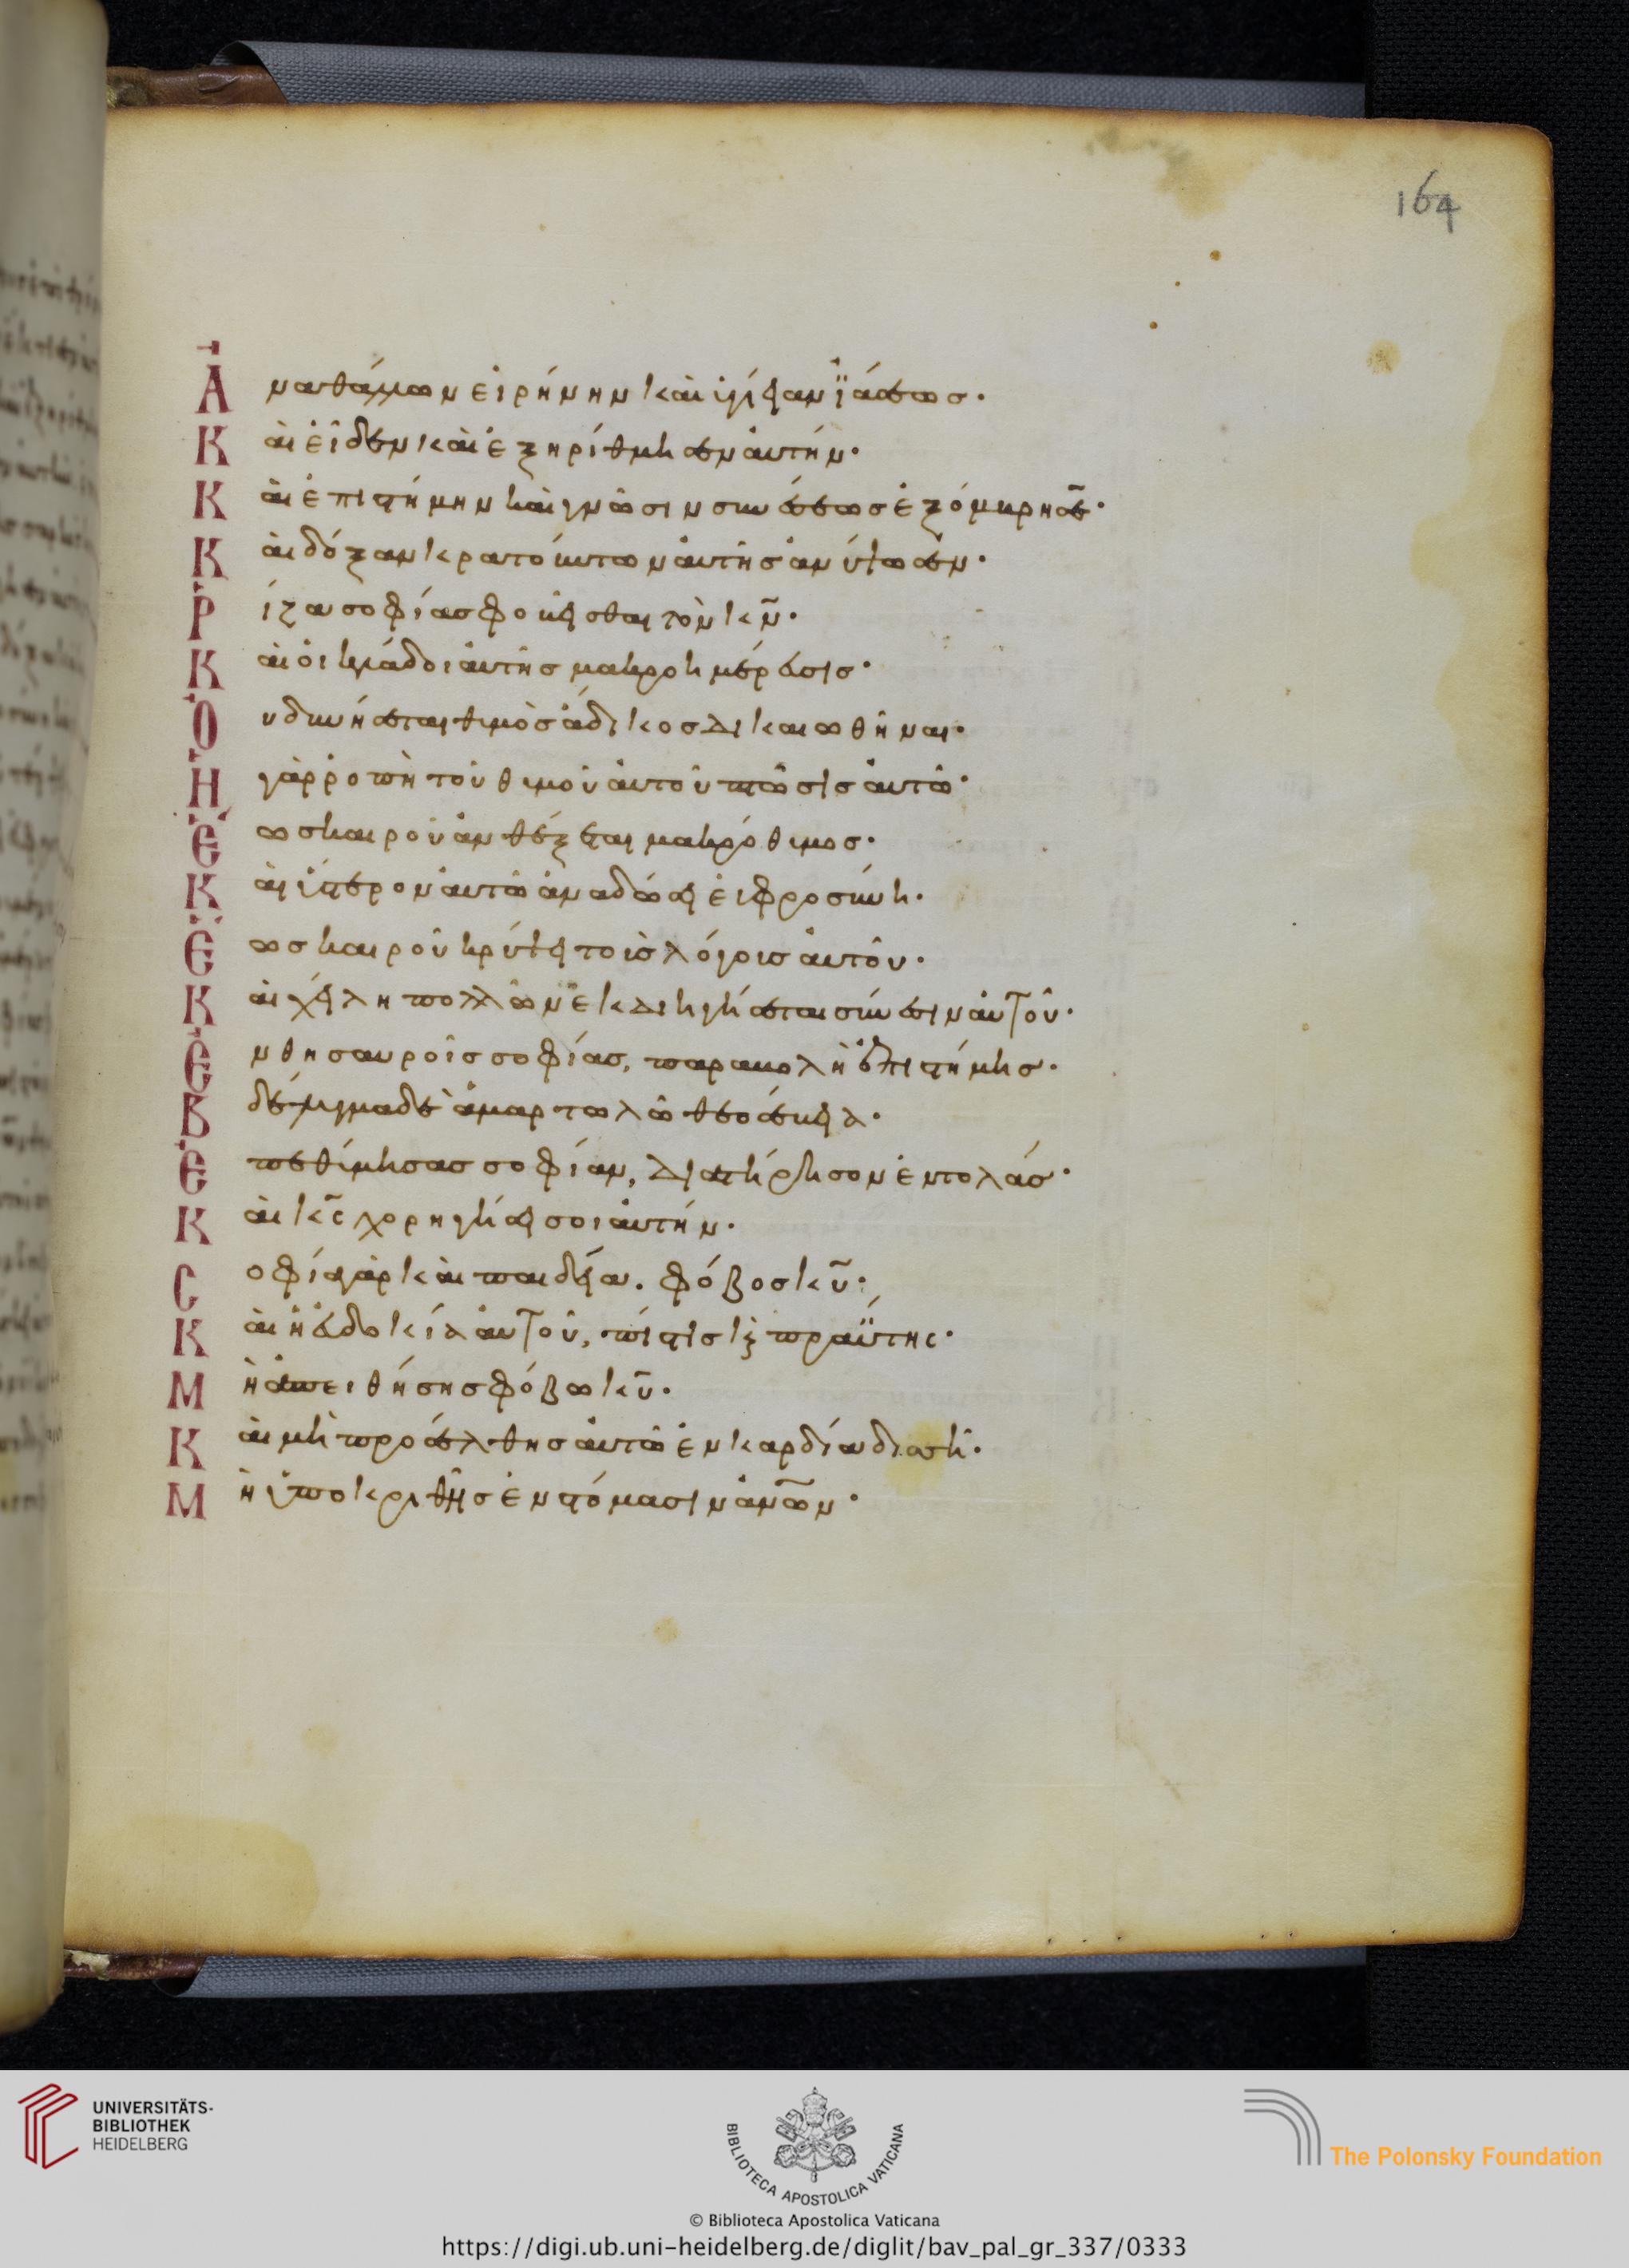 164
Ἀναθάλλων εἰρήνην καὶ ὑγίειαν ἰάσεως·
Καὶ εἶδεν καὶ ἐξηρίθμησεν αὐτήν·
Καὶ ἐπιστήμην καὶ γνῶσιν συνέσεως ἐξόμβρησε·
Καὶ δόξαν κρατούντων αὐτῆς ἀνύψωσεν·
Ῥίζα σοφίας φοβεῖσθαι τὸν κν̅·
Καὶ οἱ κλάδοι αὐτῆς μακροημέρευσις·
Οὐ δυνήσεται θυμὸς ἄδικος δικαιωθῆναι·
Ἡ γὰρ ῥοπὴ τοῦ θυμοῦ αὐτοῦ πτῶσις αὐτῶ·
Ἕως καιροῦ ἀνθέξεται μακρόθυμος·
Καὶ ὕστερον αὐτῶ ἀναδώσει εὐφροσύνη·
Ἕως καιροῦ κρύψει τοὺς λόγους αὐτοῦ·
Καὶ χείλη πολλῶν ἐκδιηγήσεται σύνεσιν αὐτοῦ·
Ἐν θησαυροῖς σοφίας, παραβολὴ ἐπιστήμης·
Βδέλυγμα δὲ ἁμαρτωλῶ θεοσέβεια·
Ἐπεθύμησας σοφίαν, διατήρησον ἐντολάς·
Καὶ κς̅ χορηγήσει σοι αὐτήν·
Σοφία γὰρ καὶ παιδεία· φόβος κυ̅·
Καὶ ἡ εὐδοκία αὐτοῦ, πίστις κ̀ πραΰτης·
Μὴ ἀπειθήσης φόβω κυ̅·
Καὶ μὴ προσέλθης αὐτῶ ἐν καρδία δισσῆ·
Μὴ ὑποκριθῆς ἐν στόμασιν ἀν̅ων·
UNIVERSITÄTS-
BIBLIOTHEK
HEIDELBERG
BIBLIOTECA APOSTOLICA VATICANA
The Polonsky Foundation
© Biblioteca Apostolica Vaticana
https://digi.ub.uni-heidelberg.de/diglit/bav_pal_gr_337/0333